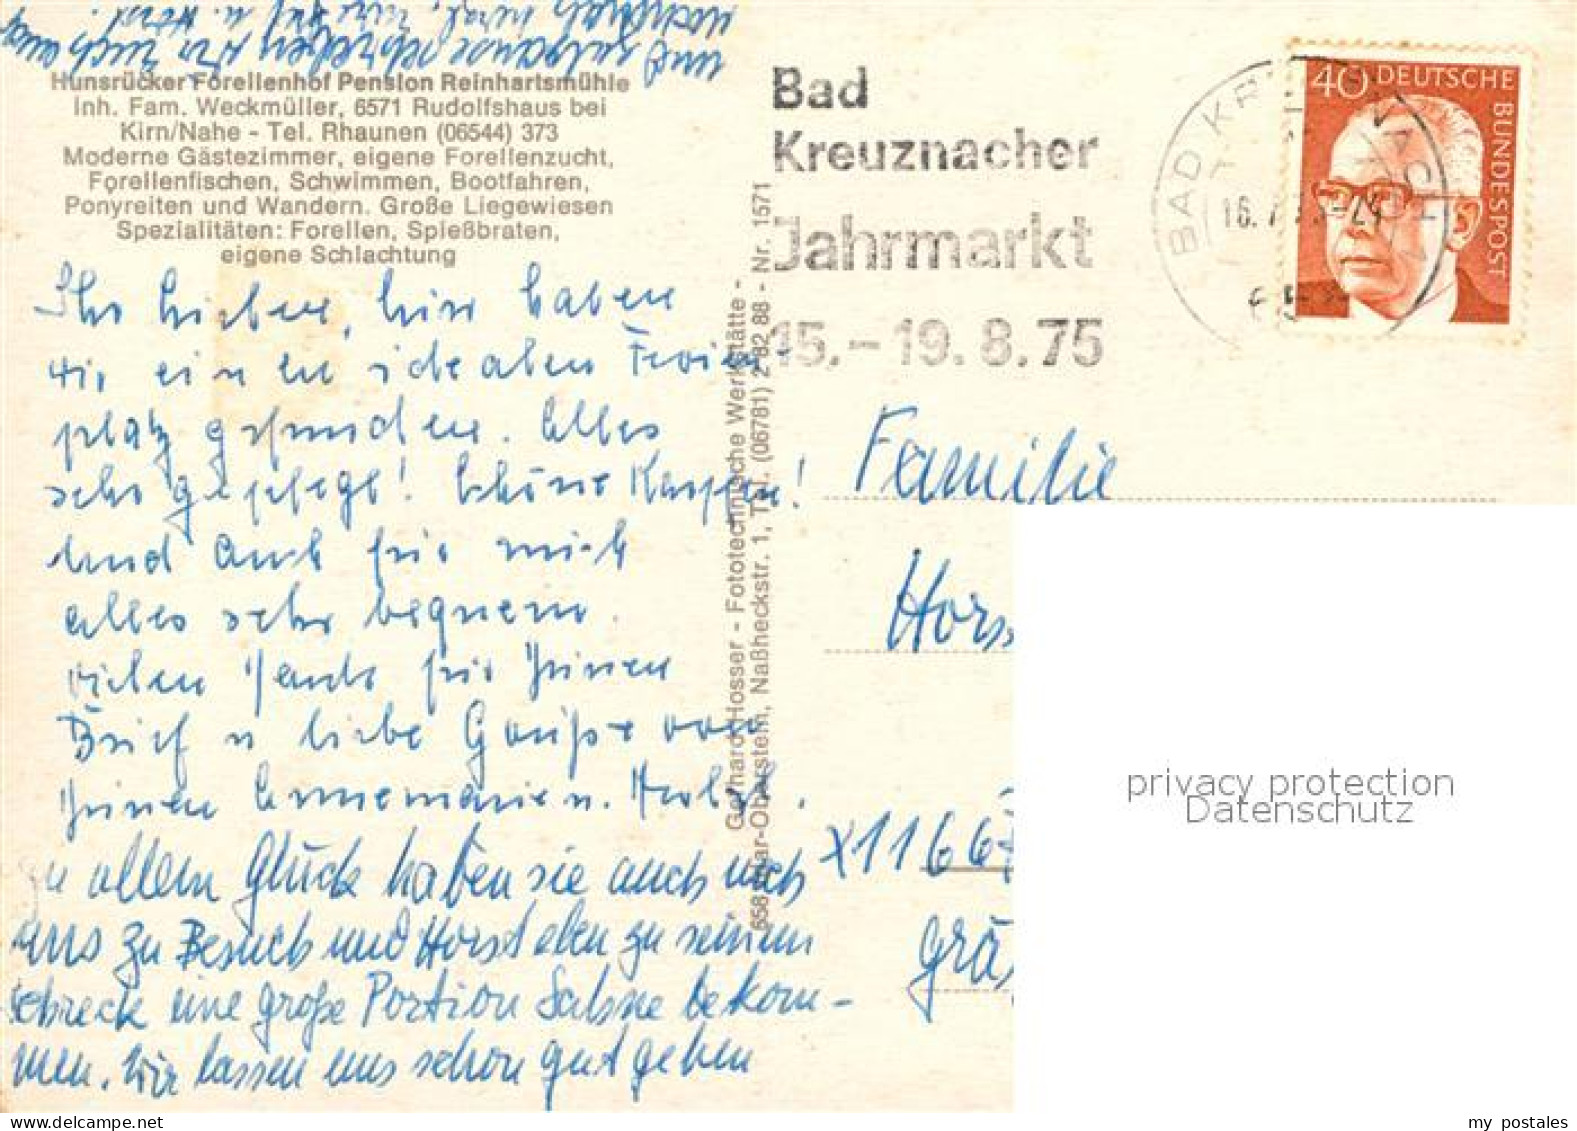 Hunsrücker Forellenhof Pension Reinhartsmühle
Inh. Fam. Weckmüller, 6571 Rudolfshaus bei
Kirn/Nahe - Tel. Rhaunen (06544) 373
Moderne Gästezimmer, eigene Forellenzucht,
Forellenfischen, Schwimmen, Bootfahren,
Ponyreiten und Wandern. Große Liegewiesen
Spezialitäten: Forellen, Spießbraten,
eigene Schlachtung
Ihr Lieben, hier haben
wir einen idealen Ferien
platz gefunden. Alles
sehr gepflegt! Schöne Karpfen!
und auch für mich
alles sehr bequem.
vielen Dank für Ihren
Brief u liebe Grüße von
Ihnen Annemarie u.
zu allem Glück haben sie auch noch
uns zu Besuch und Horst eben zu seinem
Schreck eine große Portion Sahne bekom-
men. Wir lassen uns schon gut gehen
Gerhard Hosser - Fototechnische Werkstätte -
658 Idar-Oberstein, Naßheckstr. 1, Tel. (06781) 2 82 88 - Nr. 1571
Bad
Kreuznacher
Jahrmarkt
15.-19.8.75
BAD KREUZNACH
40 DEUTSCHE
BUNDESPOST
Familie
Hors
x1166
Grä
privacy protection
Datenschutz
my postales